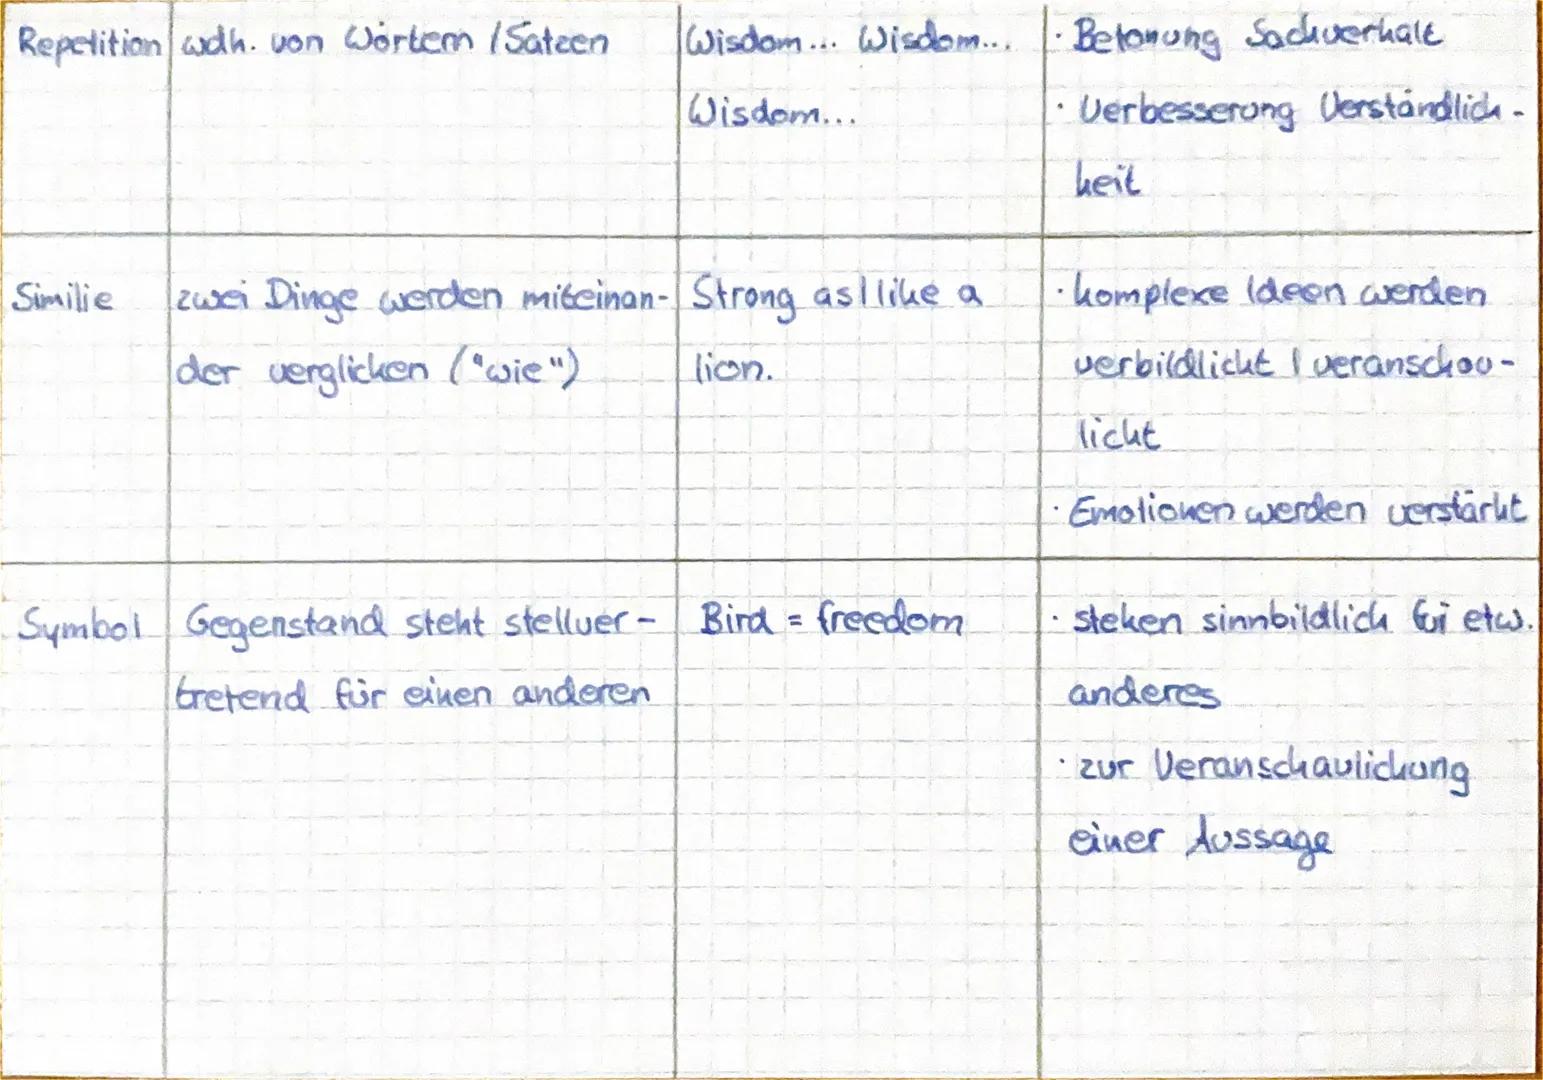 Repetition
wdh. von Wörtern / Sätzen
Wisdom... Wisdom...
Wisdom...
· Betonung Sachverhalt
· Verbesserung Verständlich-
keit
Similie
zwei Dinge werden miteinan-
der verglichen ("wie")
Strong as / like a
lion.
· komplexe Ideen werden
verbildlicht / veranschau-
licht
· Emotionen werden verstärkt
Symbol
Gegenstand steht stellver-
tretend für einen anderen
Bird = freedom
· stehen sinnbildlich für etw.
anderes
· zur Veranschaulichung
einer Aussage